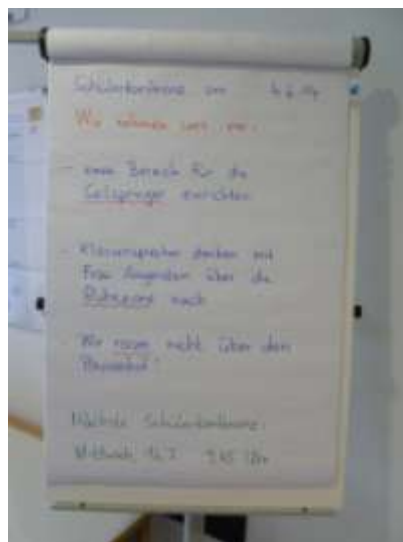 Schülerkonferenz am
Wir nehmen uns vor:
- einen Bereich für die
Seilspringer einrichten
- Klassensprecher denken mit
Frau über die
nach
- Wir rasen nicht über den
Pausenhof!
Nächste Schülerkonferenz:
Mittwoch, Uhr